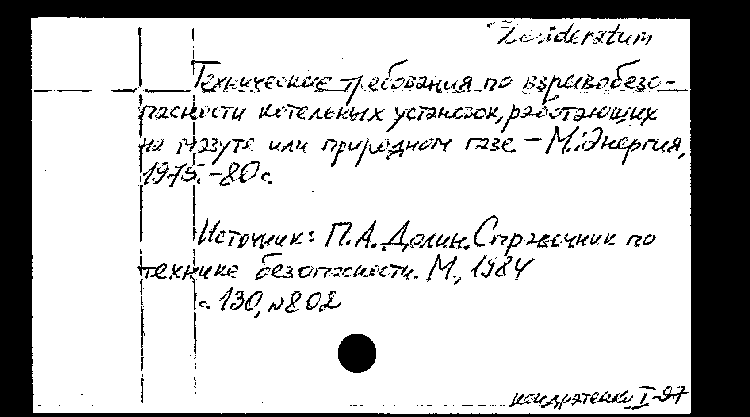 Desideratum
Технические требования по взрывобезо-
пасности котельных установок, работающих
на мазуте или природном газе. – М.: Энергия,
1975. – 80 с.
Источник: П.А. Долин. Справочник по
технике безопасности. М., 1984
с. 130, №802
Кондратенко I-97